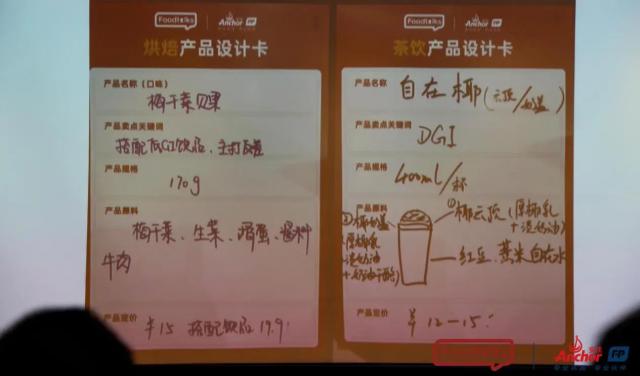 Foodtalks
Anchor FP
烘焙产品设计卡
产品名称（口味）
梅干菜贝果
产品卖点关键词
搭配低GI饮品、主打
产品规格
170g
产品原料
梅干菜、生菜、鸡蛋、酱料
牛肉
产品定价
¥15 搭配饮品 19.9
Foodtalks
Anchor FP
茶饮产品设计卡
产品名称
自在椰(云顶/奶盖)
产品卖点关键词
DGI
产品规格
400ml/杯
产品原料
①椰云顶(厚椰乳
+淡奶油)
②椰奶盖
厚椰乳
淡奶油
+奶油干酪
红豆、薏米自在水
产品定价
¥12—15
Foodtalks
Anchor FP